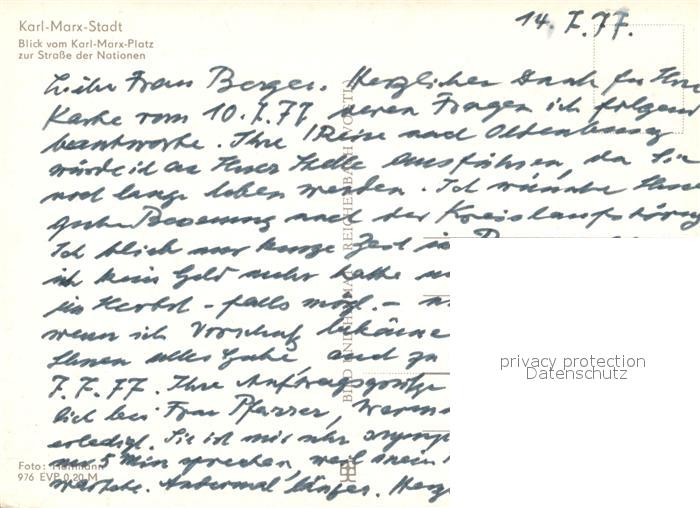 Karl-Marx-Stadt
Blick vom Karl-Marx-Platz
zur Straße der Nationen
14.7.77.
Liebe Frau Berger. Herzlichen Dank für Ihre
Karte vom 10.7.77, deren Fragen ich folgend
beantworte. Ihre Reise nach Oldenburg
würde ich an Ihrer Stelle ausführen, da Sie
noch lange leben werden. Ich wünsche Ihnen
gute Besserung nach der
Ich blieb nur kurze Zeit in
ich kein Geld mehr hatte
im Herbst - falls mögl. -
wenn ich Vorschuß bekäme
Ihnen alles Gute und zu
7.7.77. Ihre Auftragsgrüße
lich bei Frau Pfarrer,
erledigt. Sie ist mir sehr
nur 5 Min sprechen, weil mein
wartete. Andermal länger. Herz
BILD UND HEIMAT REICHENBACH (VOGTL)
privacy protection
Datenschutz
Foto:
976 EVP 0,20 M